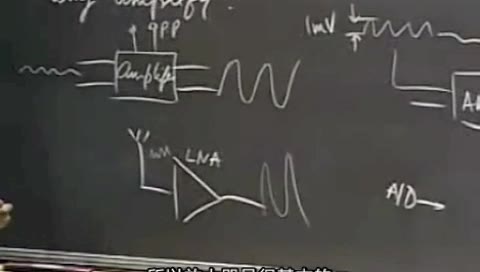 Why amplify?
Amplifier
1mV
LNA
A/D
所以放大器是很基本的